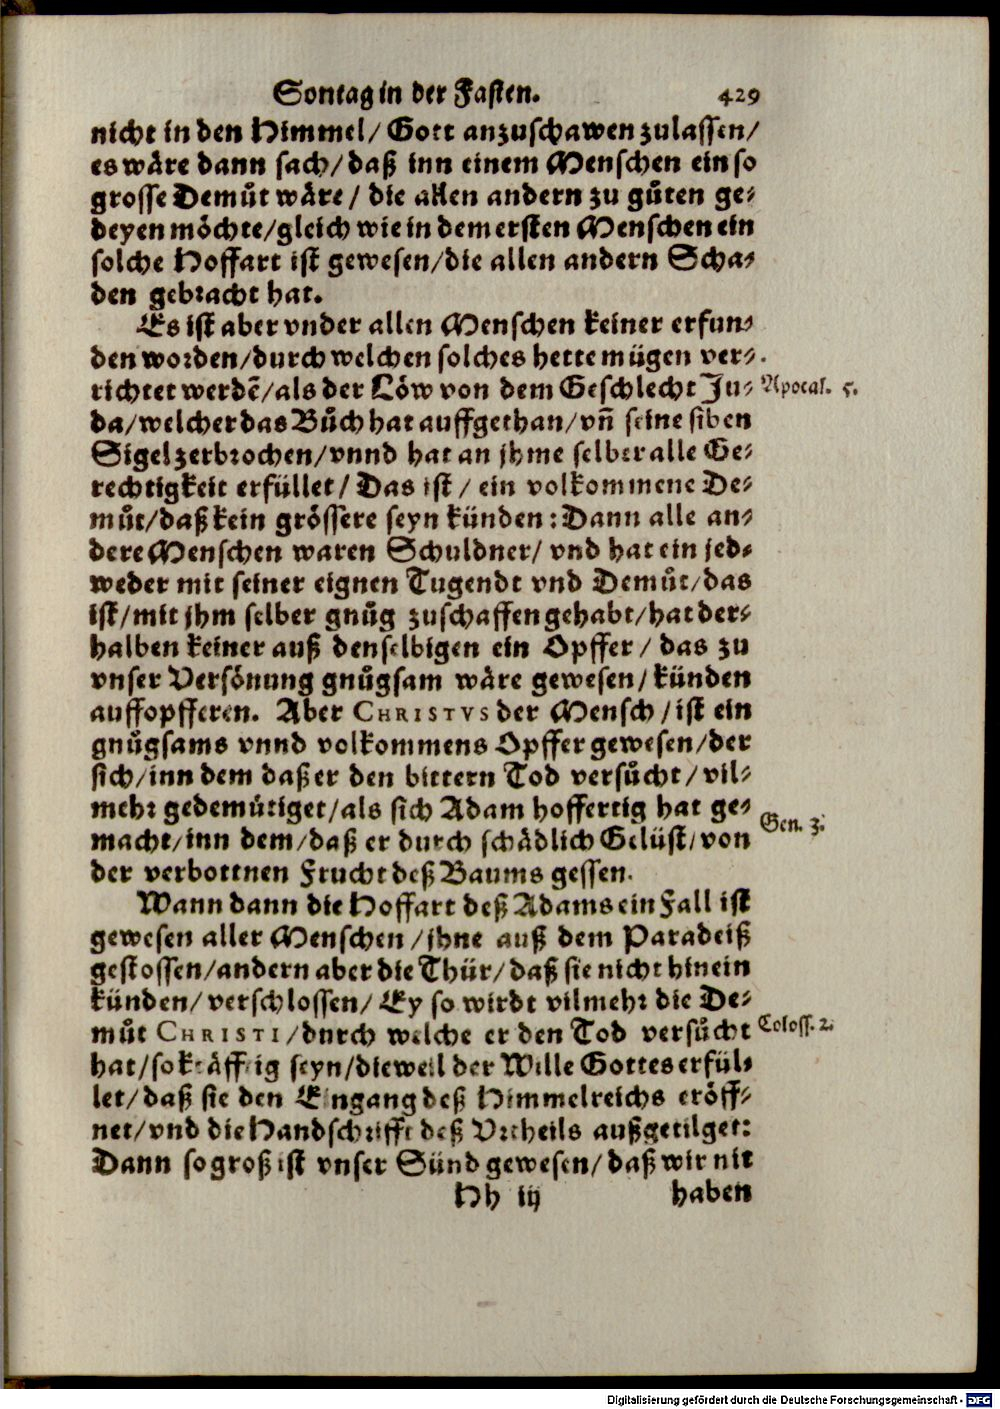 Sontag in der Fasten. 429
nicht in den Himmel/ Gott anzuschawen zulassen/
es wäre dann sach/ daß inn einem Menschen ein so
grosse Demůt wäre/ die allen andern zu gůten ge-
deyen möchte/ gleich wie in dem ersten Menschen ein
solche Hoffart ist gewesen/ die allen andern Scha-
den gebracht hat.
Es ist aber vnder allen Menschen keiner erfun-
den worden/ durch welchen solches hette mügen ver-
richtet werdẽ/ als der Löw von dem Geschlecht Ju- Apocal. 5.
da/ welcher das Bůch hat auffgethan/ vñ seine siben
Sigel zerbrochen/ vnnd hat an jhme selber alle Ge-
rechtigkeit erfüllet/ Das ist/ ein volkommene De-
můt/ daß kein grössere seyn künden: Dann alle an-
dere Menschen waren Schuldner/ vnd hat ein jed-
weder mit seiner eignen Tugendt vnd Demůt/ das
ist/ mit jhm selber gnůg zuschaffen gehabt/ hat der-
halben keiner auß denselbigen ein Opffer/ das zu
vnser Versönung gnůgsam wäre gewesen/ künden
auffopfferen. Aber CHRISTVS der Mensch/ ist ein
gnůgsams vnnd volkommens Opffer gewesen/ der
sich/ inn dem daß er den bittern Tod versůcht/ vil-
mehr gedemütiget/ als sich Adam hoffertig hat ge-
macht/ inn dem/ daß er durch schädlich Gelüst/ von Gen. 3.
der verbottnen Frucht deß Baums gessen.
Wann dann die Hoffart deß Adams ein Fall ist
gewesen aller Menschen/ jhne auß dem Paradeiß
gestossen/ andern aber die Thür/ daß sie nicht hinein
künden/ verschlossen/ Ey so wirdt vilmehr die De-
můt CHRISTI/ durch welche er den Tod versůcht Coloss. 2.
hat/ so kräfftig seyn/ dieweil der Wille Gottes erfül-
let/ daß sie den Eingang deß Himmelreichs eröff-
net/ vnd die Handschrifft deß Vrtheils außgetilget:
Dann so groß ist vnser Sünd gewesen/ daß wir nit
Hh iij haben
Digitalisierung gefördert durch die Deutsche Forschungsgemeinschaft - DFG